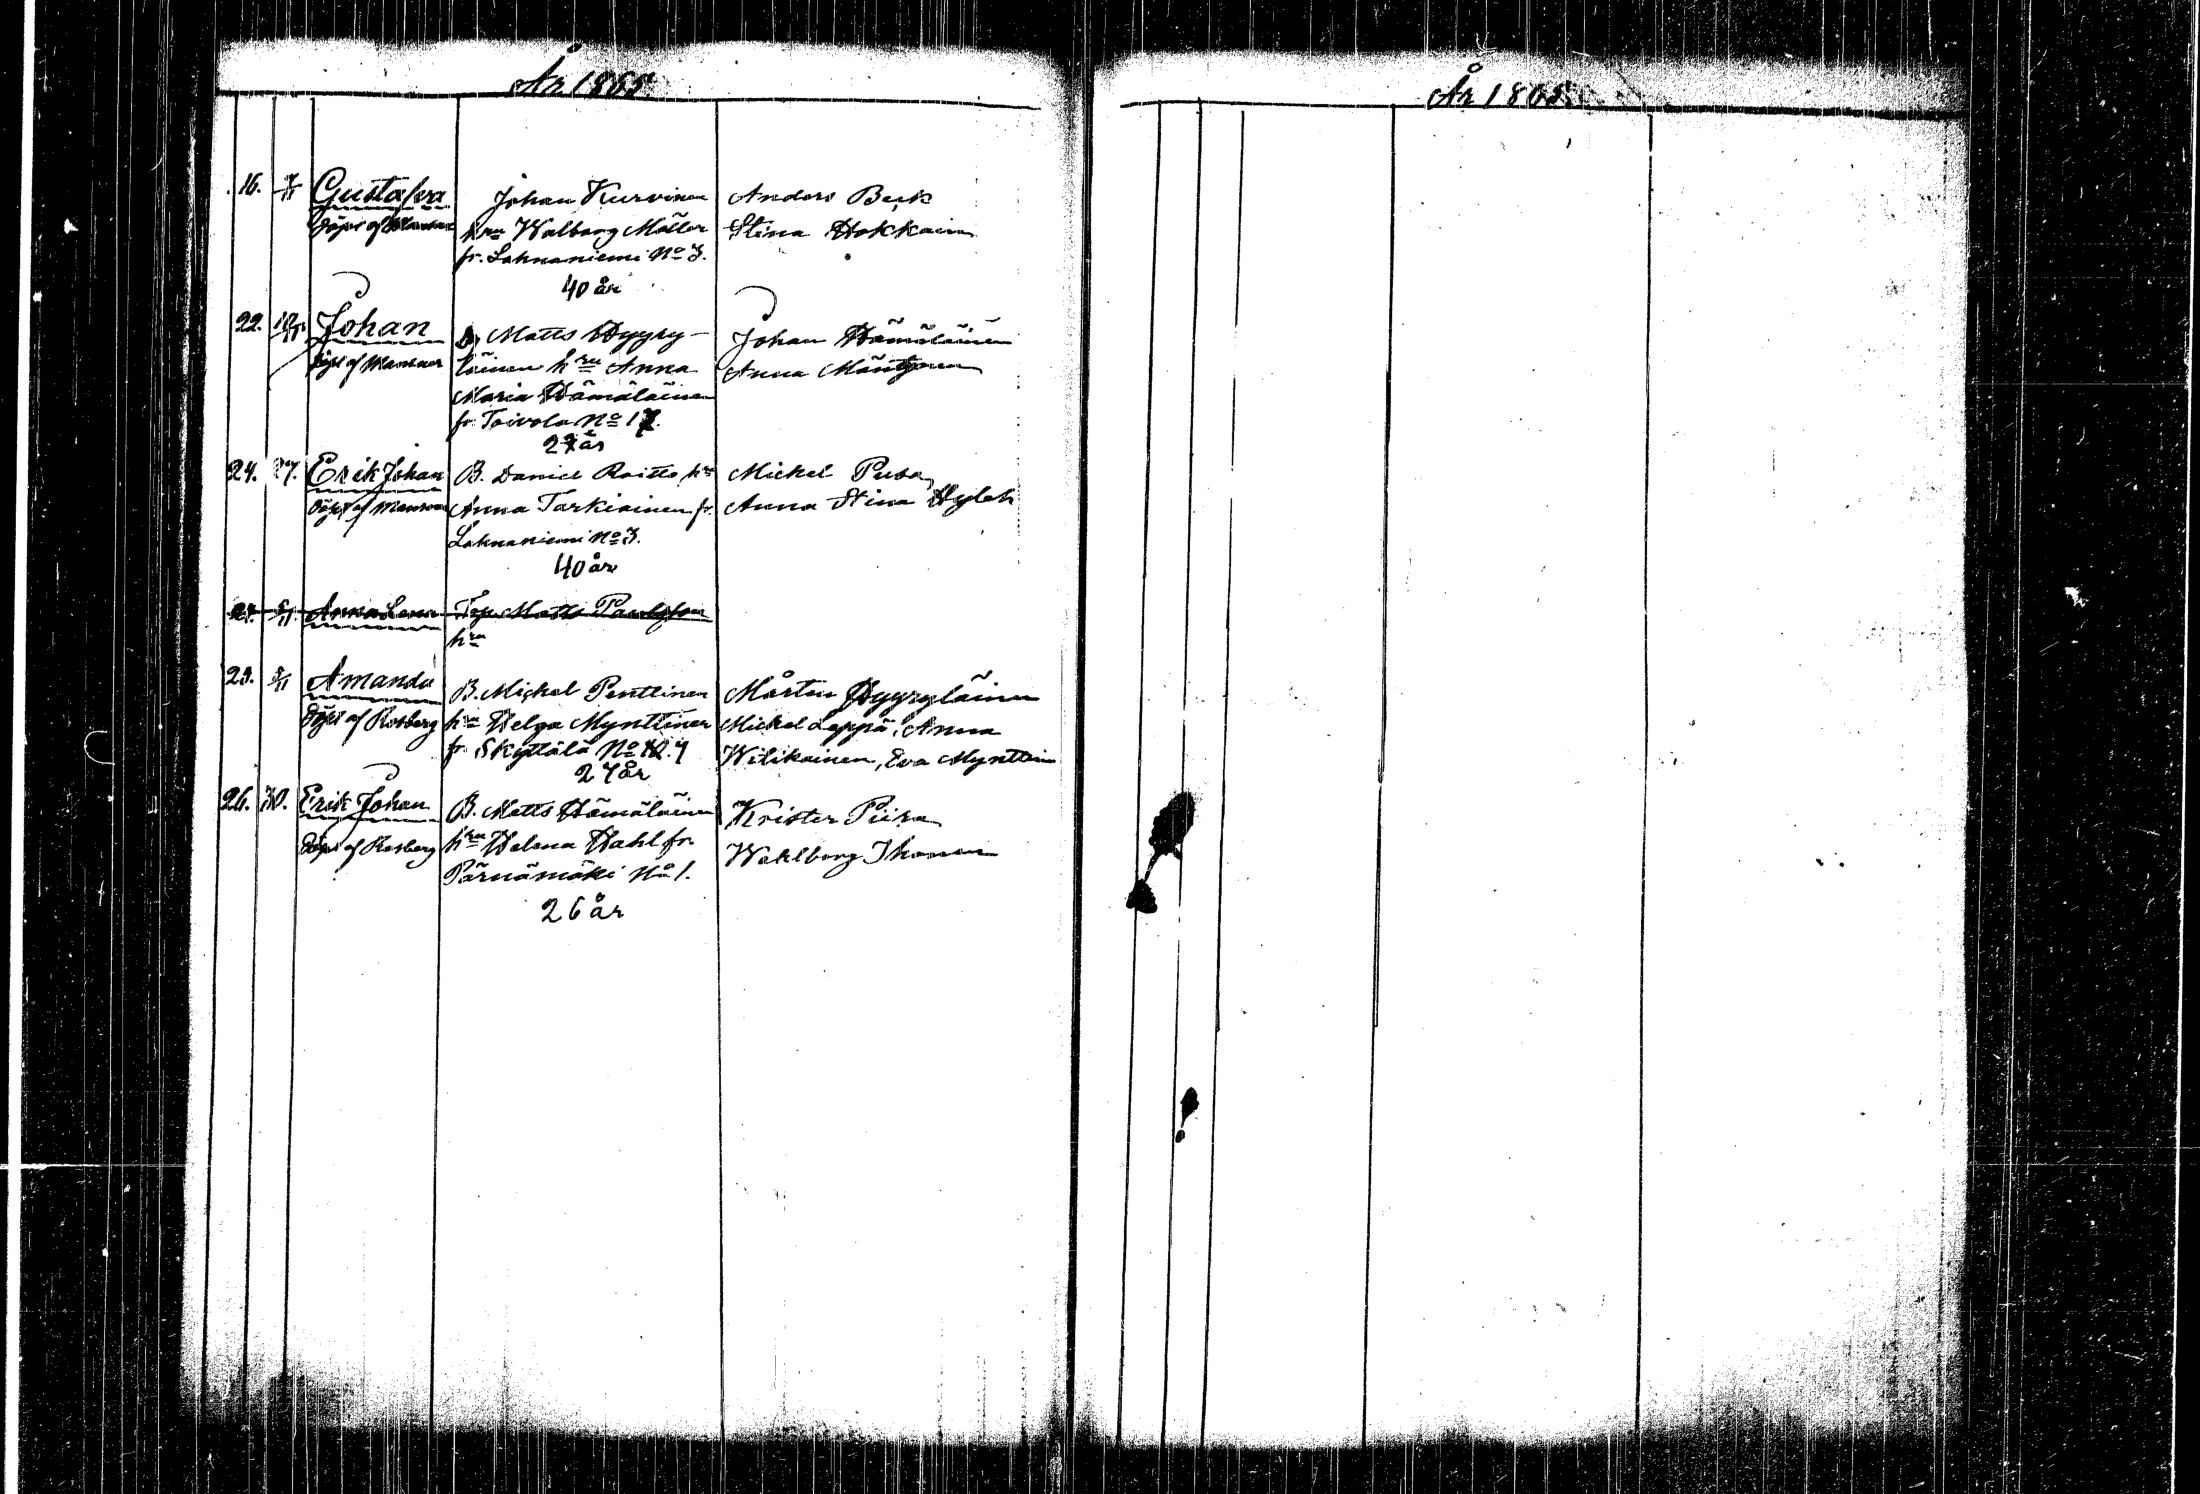 År 1865.
År 1865.
16. 7/11 Gustafva
Döpt af Mansner
Johan Kurvinen
hru Walborg Möller
fr. Lahnaniemi No 3.
40 år
Anders Beck
Stina Hokkain
22. Johan
Döpt af Mansner
B. Matts Hyyry-
läinen hru Anna
Maria Hämäläinen
fr. Toivola No 17.
27 år
Johan Hämäläinen
Anna Mäntynen
24. 27. Erik Johan
Döpt af Mansner
B. Daniel Raitta hru
Anna Tarkiainen fr.
Lahnaniemi No 3.
40 år
Michel Pusa,
Anna Stina Hyleh
Anna Lena
Matts
hru
29. 5/11 Amanda
Döpt af Rosberg
B. Michel Penttinen
hru Helga Mynttinen
fr. Skyttälä No 7
27 år
Mårten Hyyryläinen
Mickel Leppä, Anna
Wilikainen, Eva Mynttin
26. 30. Erik Johan
Döpt af Rosberg
B. Matts Hämäläinen
hru Helena Hahl fr.
Pärnämäki No 1.
26 år
Krister Piira
Wahlborg Ihonen